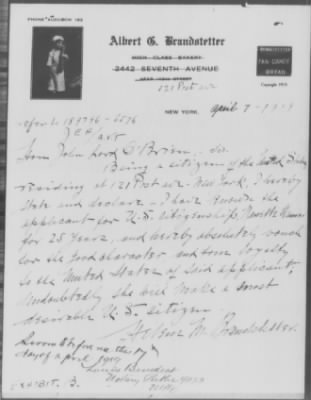 PHONE AUDUBON
Albert G. Brandstetter
HIGH CLASS BAKERY
2442 SEVENTH AVENUE
121 Post ave
BRANDSTETTER
PAN CANDY
BREAD
NEW YORK, April 7 - 1919
Refer to 189746
Hon. John Lord O'Brien, Sir.
Being a citizen of the United States
residing at 121 Post ave - New York, I hereby
state and declare - I have known the
applicant for U.S. Citizenship,
for 25 years, and hereby absolutely vouch
for the good character and true loyalty
to the United States of said applicant,
Undoubtedly she will make a most
desirable U.S. Citizen.
M. Brandstetter.
Sworn to before me this 7
day of April 1919
Louis
Notary Public
EXHIBIT. B.